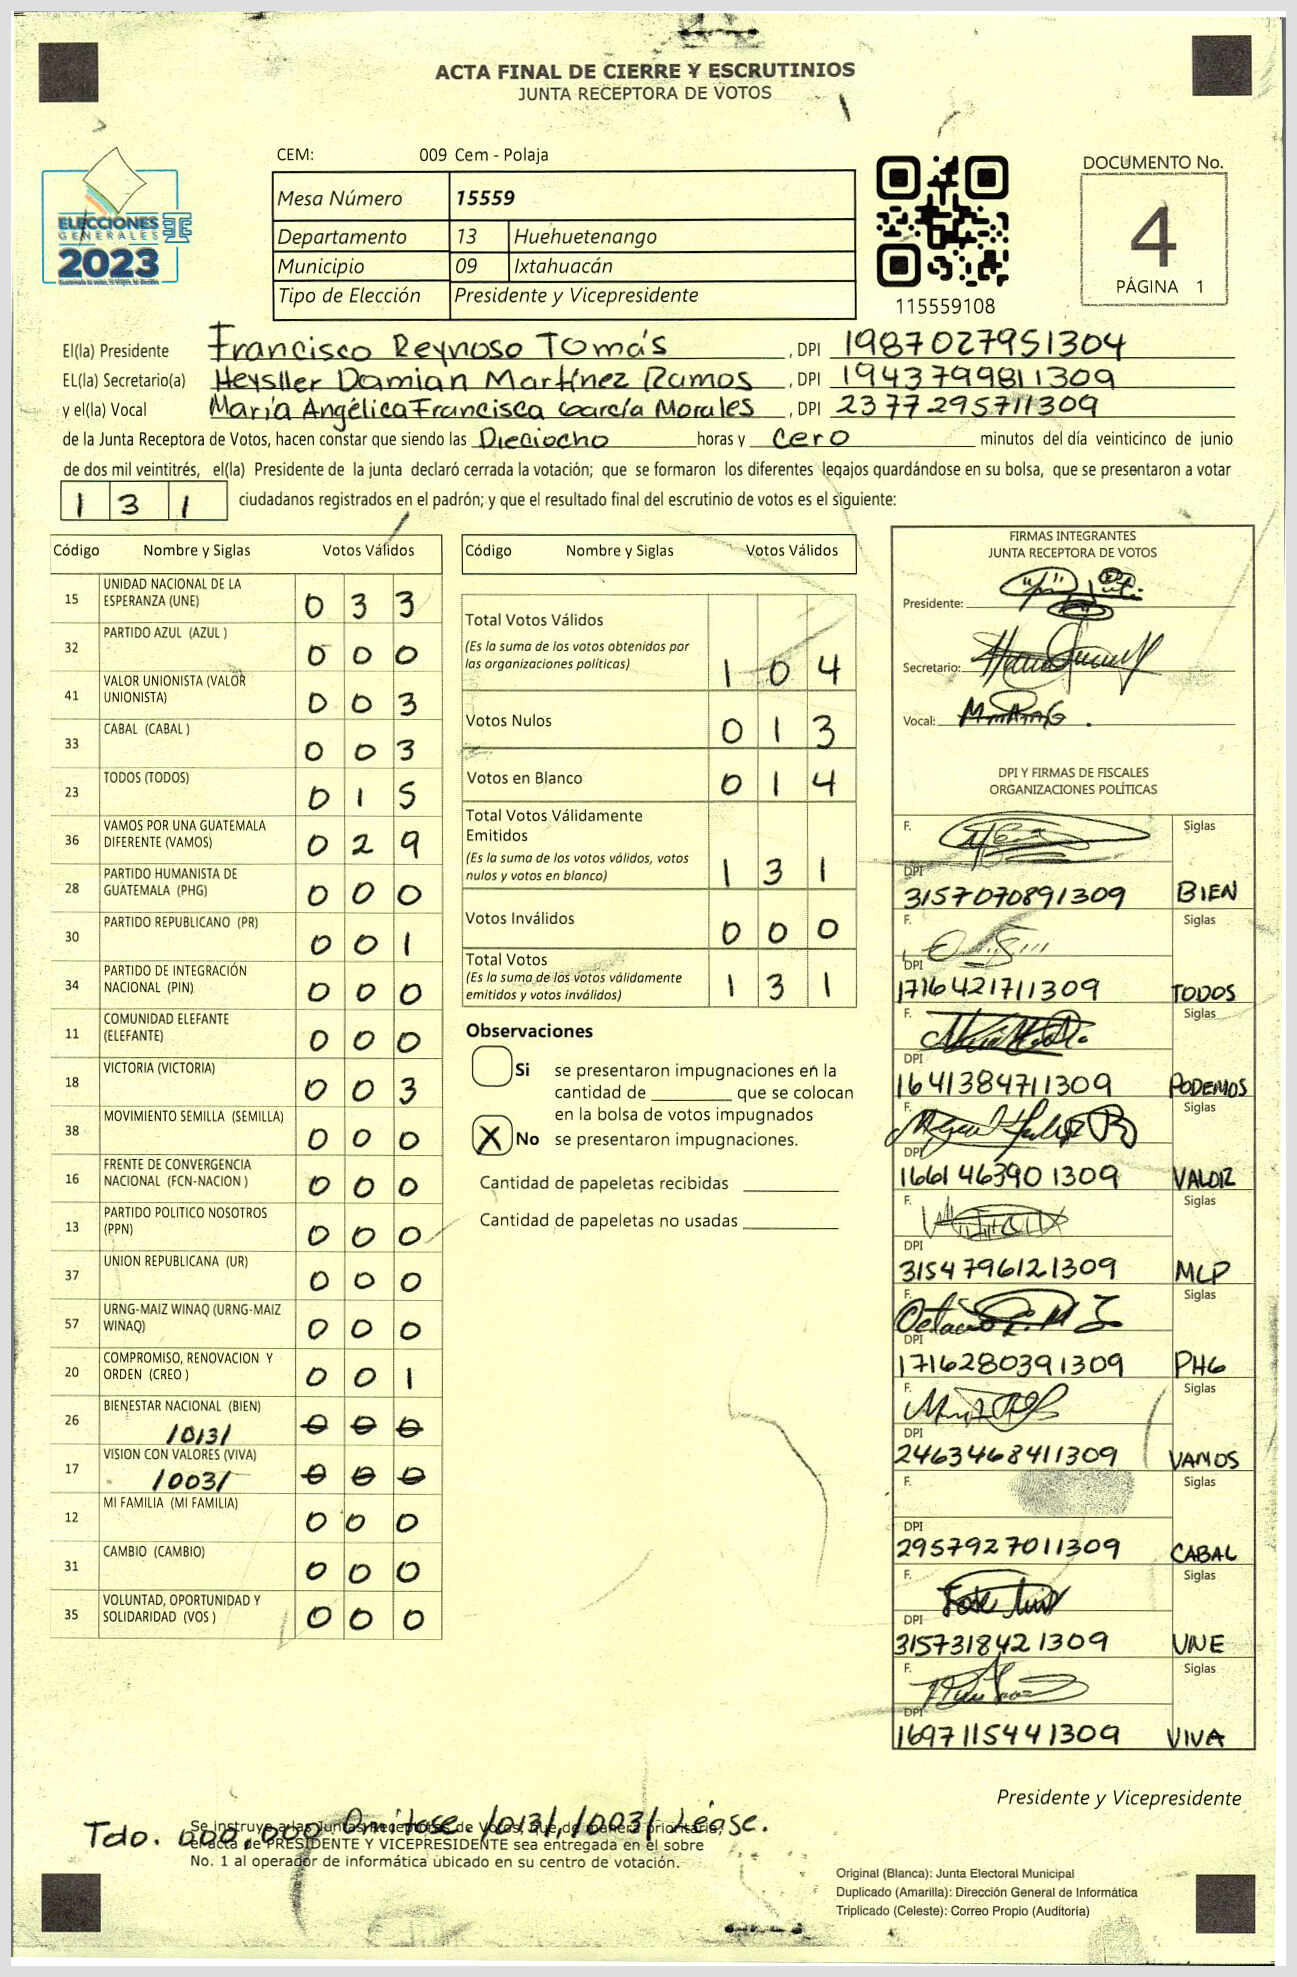 ACTA FINAL DE CIERRE Y ESCRUTINIOS
JUNTA RECEPTORA DE VOTOS
ELECCIONES
GENERALES
2023
CEM: 009 Cem - Polaja
Mesa Número 15559
Departamento 13 Huehuetenango
Municipio 09 Ixtahuacán
Tipo de Elección Presidente y Vicepresidente
115559108
DOCUMENTO No.
4
PÁGINA 1
El(la) Presidente Francisco Reynoso Tomás , DPI 1987027951304
EL(la) Secretario(a) Heysller Damian Martínez Ramos , DPI 1943799811309
y el(la) Vocal María Angélica Francisca García Morales , DPI 2377295711309
de la Junta Receptora de Votos, hacen constar que siendo las Dieciocho horas y cero minutos del día veinticinco de junio
de dos mil veintitrés, el(la) Presidente de la junta declaró cerrada la votación; que se formaron los diferentes legajos guardándose en su bolsa, que se presentaron a votar
131 ciudadanos registrados en el padrón; y que el resultado final del escrutinio de votos es el siguiente:
Código Nombre y Siglas Votos Válidos
15 UNIDAD NACIONAL DE LA ESPERANZA (UNE) 0 3 3
32 PARTIDO AZUL (AZUL ) 0 0 0
41 VALOR UNIONISTA (VALOR UNIONISTA) 0 0 3
33 CABAL (CABAL ) 0 0 3
23 TODOS (TODOS) 0 1 5
36 VAMOS POR UNA GUATEMALA DIFERENTE (VAMOS) 0 2 9
28 PARTIDO HUMANISTA DE GUATEMALA (PHG) 0 0 0
30 PARTIDO REPUBLICANO (PR) 0 0 1
34 PARTIDO DE INTEGRACIÓN NACIONAL (PIN) 0 0 0
11 COMUNIDAD ELEFANTE (ELEFANTE) 0 0 0
18 VICTORIA (VICTORIA) 0 0 3
38 MOVIMIENTO SEMILLA (SEMILLA) 0 0 0
16 FRENTE DE CONVERGENCIA NACIONAL (FCN-NACION ) 0 0 0
13 PARTIDO POLITICO NOSOTROS (PPN) 0 0 0
37 UNION REPUBLICANA (UR) 0 0 0
57 URNG-MAIZ WINAQ (URNG-MAIZ WINAQ) 0 0 0
20 COMPROMISO, RENOVACION Y ORDEN (CREO ) 0 0 1
26 BIENESTAR NACIONAL (BIEN) /013/ 0 0 0
17 VISION CON VALORES (VIVA) /003/ 0 0 0
12 MI FAMILIA (MI FAMILIA) 0 0 0
31 CAMBIO (CAMBIO) 0 0 0
35 VOLUNTAD, OPORTUNIDAD Y SOLIDARIDAD (VOS ) 0 0 0
Código Nombre y Siglas Votos Válidos
Total Votos Válidos
(Es la suma de los votos obtenidos por
las organizaciones políticas) 1 0 4
Votos Nulos 0 1 3
Votos en Blanco 0 1 4
Total Votos Válidamente
Emitidos
(Es la suma de los votos válidos, votos
nulos y votos en blanco) 1 3 1
Votos Inválidos 0 0 0
Total Votos
(Es la suma de los votos válidamente
emitidos y votos inválidos) 1 3 1
Observaciones
Si se presentaron impugnaciones en la
cantidad de ________ que se colocan
en la bolsa de votos impugnados
X No se presentaron impugnaciones.
Cantidad de papeletas recibidas
Cantidad de papeletas no usadas
FIRMAS INTEGRANTES
JUNTA RECEPTORA DE VOTOS
Presidente:
Secretario:
Vocal:
DPI Y FIRMAS DE FISCALES
ORGANIZACIONES POLÍTICAS
F. Siglas
DPI
3157070891309 BIEN
F. Siglas
DPI
1716421711309 TODOS
F. Siglas
DPI
1641384711309 PODEMOS
F. Siglas
DPI
1661463901309 VALOIZ
F. Siglas
DPI
3154796121309 MLP
F. Siglas
DPI
1716280391309 PHG
F. Siglas
DPI
2463468411309 VAMOS
F. Siglas
DPI
2957927011309 CABAL
F. Siglas
DPI
3157318421309 UNE
F. Siglas
DPI
1697115441309 VIVA
Presidente y Vicepresidente
Tdo. 000,000 Omitase /013/,/003/ Léase.
Se instruye a las Juntas Receptoras de Votos, que de manera prioritaria,
el acta de PRESIDENTE Y VICEPRESIDENTE sea entregada en el sobre
No. 1 al operador de informática ubicado en su centro de votación.
Original (Blanca): Junta Electoral Municipal
Duplicado (Amarilla): Dirección General de Informática
Triplicado (Celeste): Correo Propio (Auditoría)